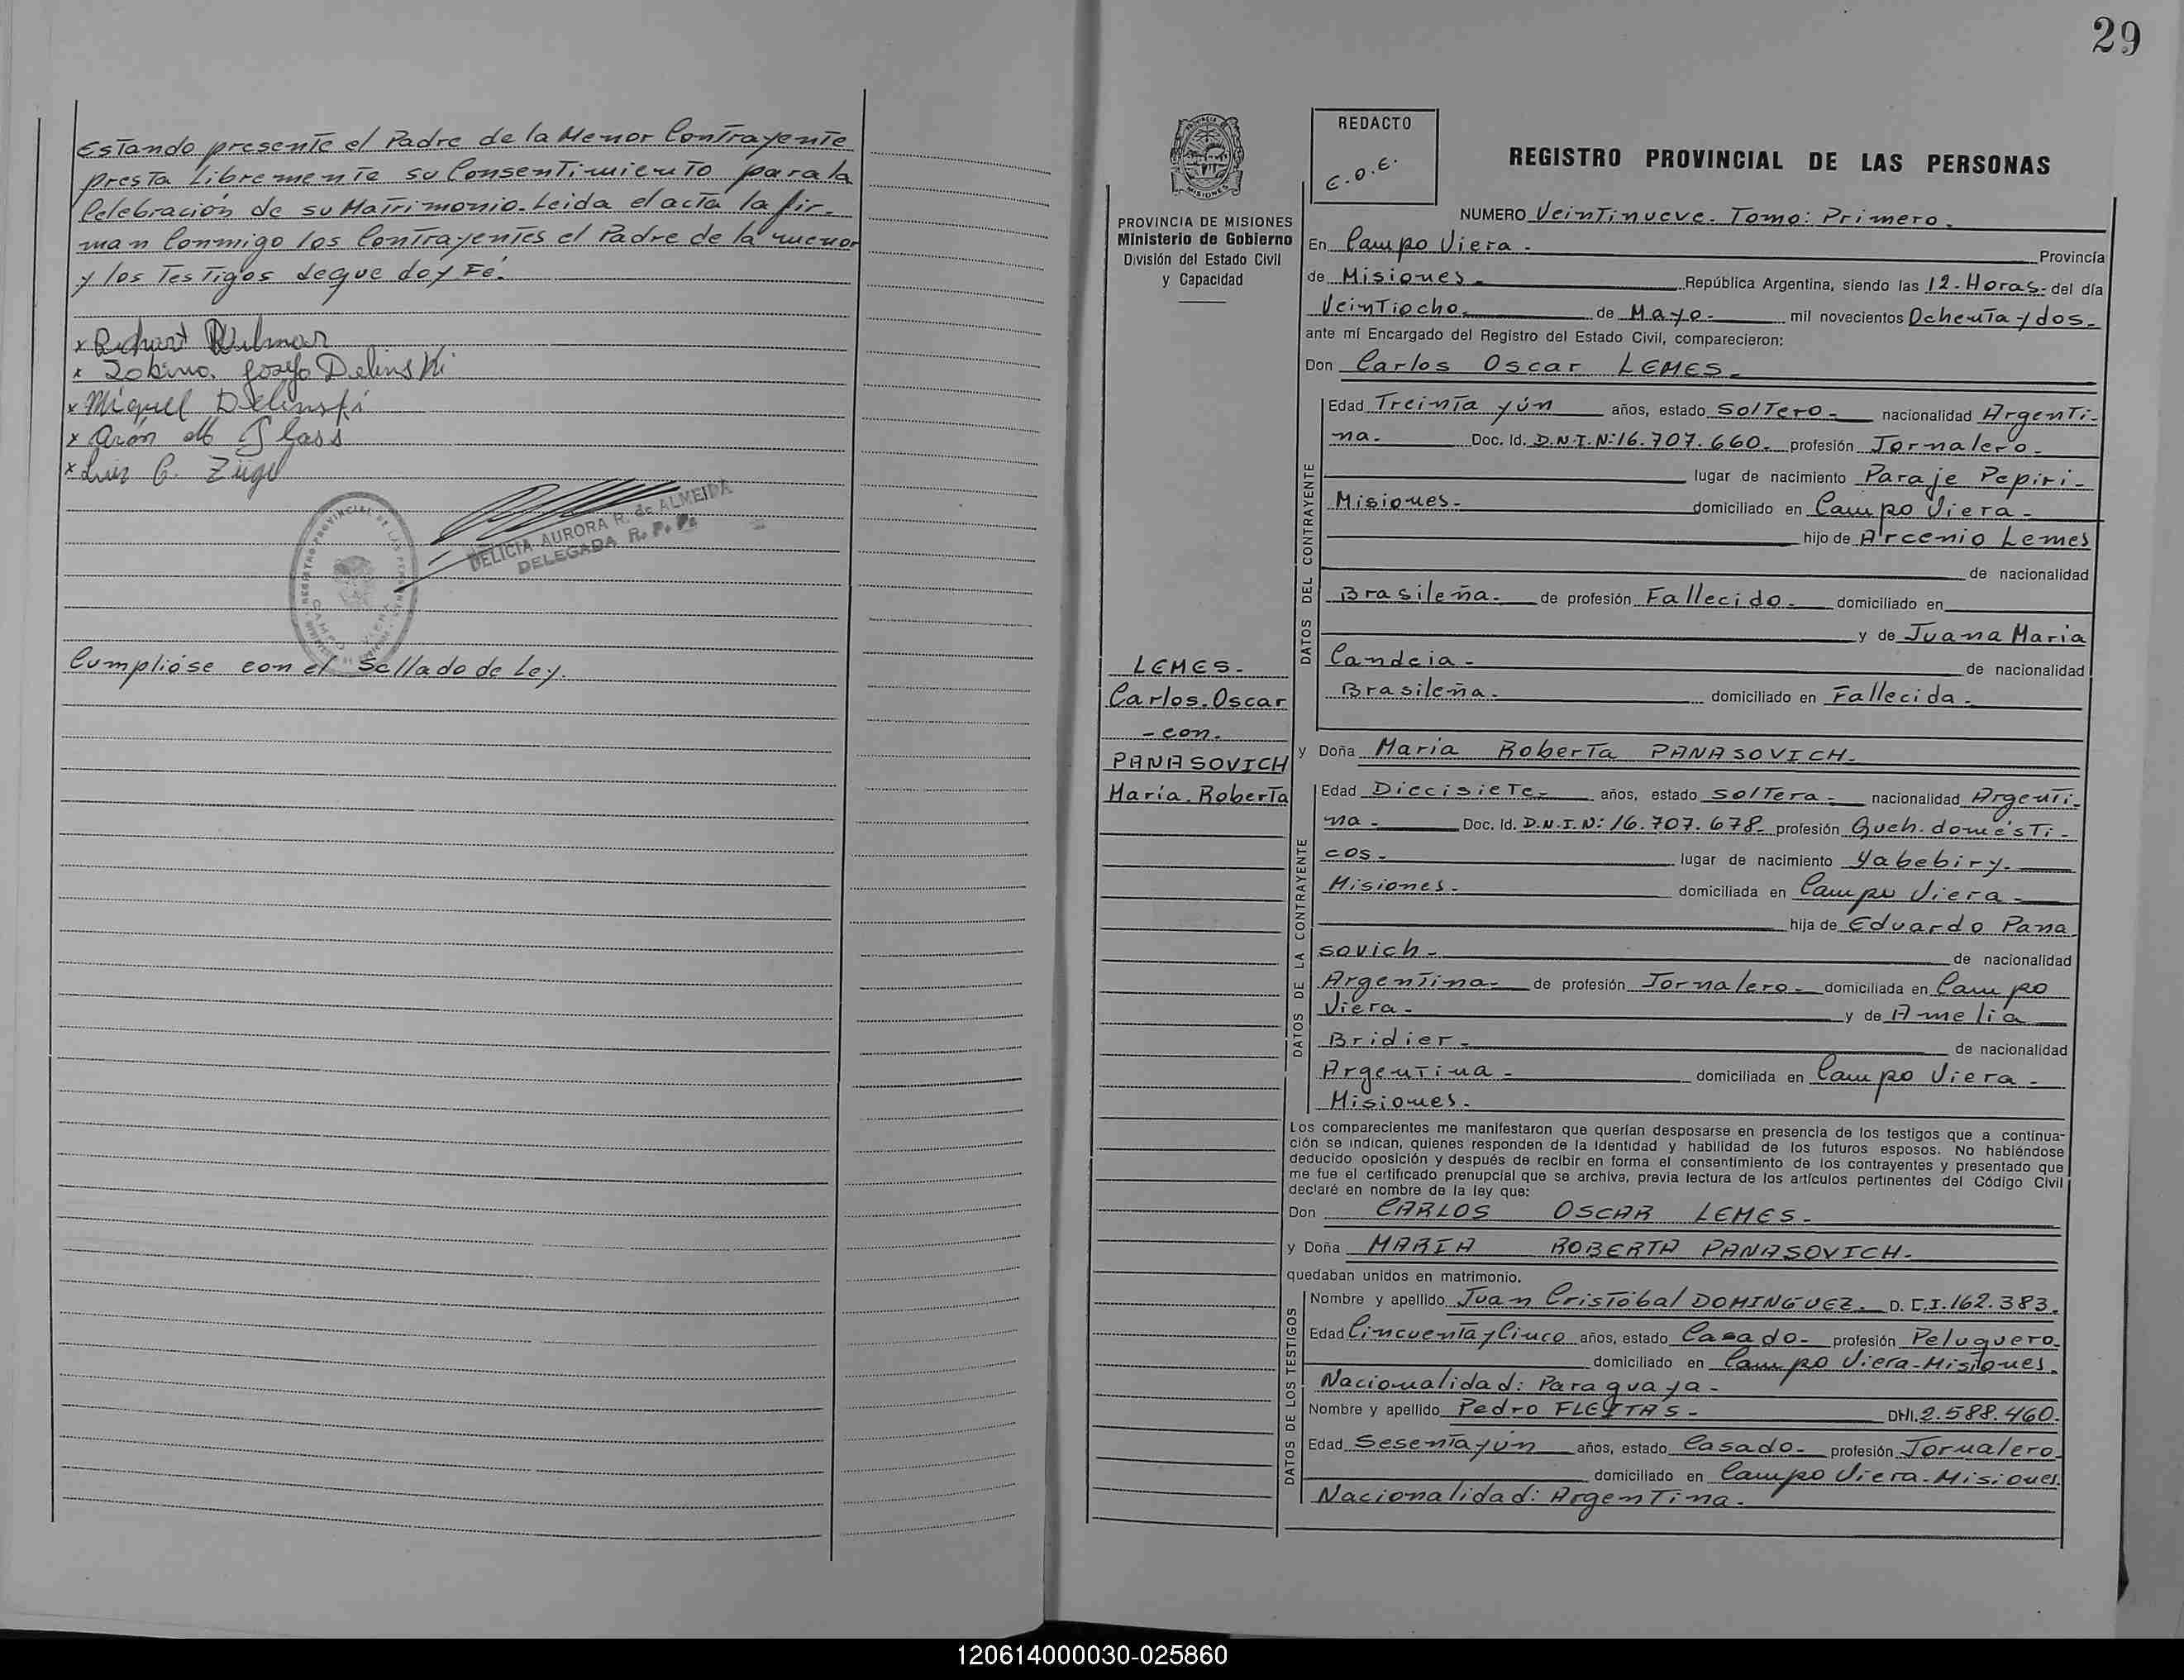 Estando presente el Padre de la Menor Contrayente
presta libremente su Consentimiento para la
Celebración de su Matrimonio. Leida el acta la fir-
man Conmigo los Contrayentes el Padre de la menor
y los Testigos deque doy Fé.
x Richart
x Josefa Delinski
x Miguel Delinski
x
x Luis C. Zügel
DELICIA AURORA R. de ALMEIDA
DELEGADA R. P. P.
REGISTRO PROVINCIAL DE LAS PERSONAS
Cumplióse con el Sellado de Ley.
29
REDACTO
E.O.E.
MISIONES
REGISTRO PROVINCIAL DE LAS PERSONAS
PROVINCIA DE MISIONES
Ministerio de Gobierno
División del Estado Civil
y Capacidad
NUMERO Veintinueve. Tomo: Primero.
En Campo Viera - Provincia
de Misiones - República Argentina, siendo las 12-Horas- del día
Veintiocho. de Mayo- mil novecientos Ochenta y dos-
ante mí Encargado del Registro del Estado Civil, comparecieron:
Don Carlos Oscar LEMES-
DATOS DEL CONTRAYENTE
Edad Treinta y ún años, estado Soltero- nacionalidad Argenti-
na- Doc. Id. D.N.I.Nº:16.707.660- profesión Jornalero-
lugar de nacimiento Paraje Pepiri-
Misiones- domiciliado en Campo Viera-
hijo de Arcenio Lemes
de nacionalidad
Brasileña- de profesión Fallecido- domiciliado en
y de Juana Maria
Candeia- de nacionalidad
Brasileña- domiciliado en Fallecida-
LEMES-
Carlos.Oscar
-con-
PANASOVICH
María.Roberta
y Doña Maria Roberta PANASOVICH-
DATOS DE LA CONTRAYENTE
Edad Diecisiete- años, estado Soltera- nacionalidad Argenti-
na- Doc. Id. D.N.I.N: 16.707.678- profesión Queh. domésti-
cos- lugar de nacimiento Yabebiry-
Misiones- domiciliada en Campo Viera-
hija de Eduardo Pana
sovich- de nacionalidad
Argentina- de profesión Jornalero- domiciliada en Campo
Viera- y de Amelia
Bridier- de nacionalidad
Argentina- domiciliada en Campo Viera-
Misiones-
Los comparecientes me manifestaron que querían desposarse en presencia de los testigos que a continua-
ción se indican, quienes responden de la identidad y habilidad de los futuros esposos. No habiéndose
deducido oposición y después de recibir en forma el consentimiento de los contrayentes y presentado que
me fue el certificado prenupcial que se archiva, previa lectura de los artículos pertinentes del Código Civil
declaré en nombre de la ley que:
Don CARLOS OSCAR LEMES-
y Doña MARIA ROBERTA PANASOVICH-
quedaban unidos en matrimonio.
DATOS DE LOS TESTIGOS
Nombre y apellido Juan Cristóbal DOMINGUEZ- D. C.I.162.383.
Edad Cincuenta y Cinco años, estado Casado- profesión Peluquero-
domiciliado en Campo Viera-Misiones.
Nacionalidad: Paraguaya-
Nombre y apellido Pedro FLEYTAS- DNI.2.588.460.
Edad Sesenta y ún años, estado Casado- profesión Jornalero
domiciliado en Campo Viera-Misiones
Nacionalidad: Argentina-
120614000030-025860